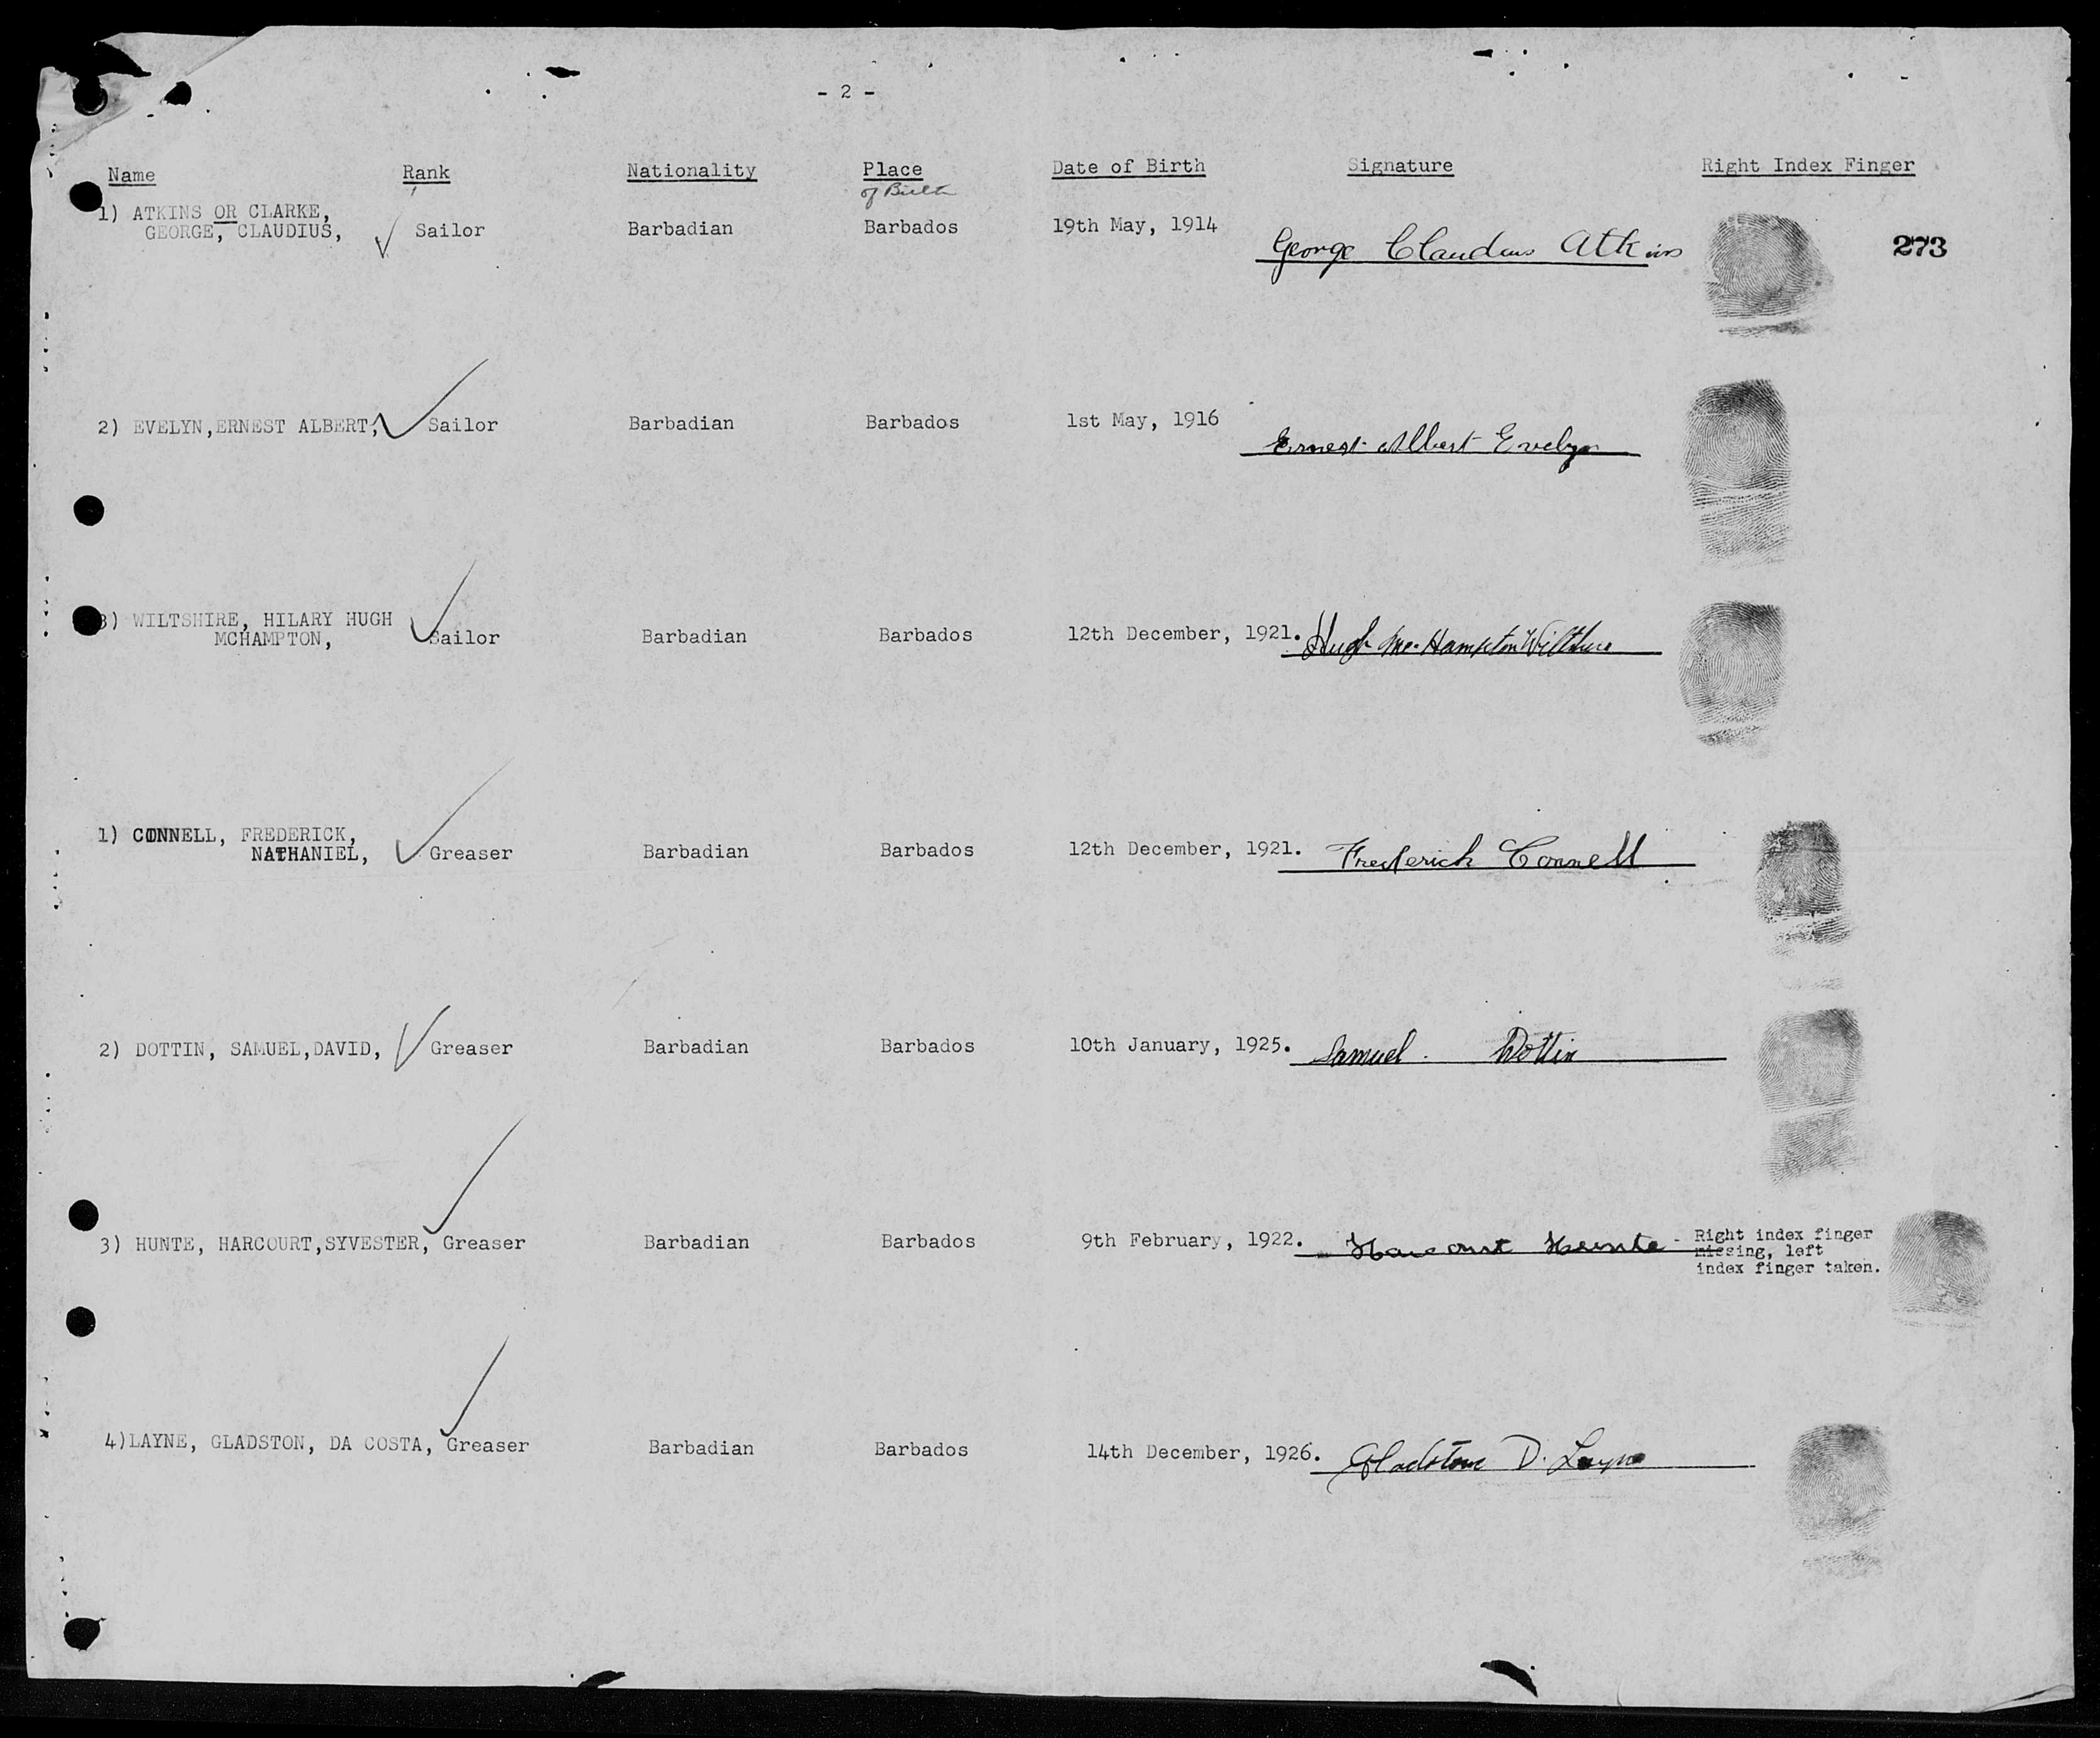 - 2 -
Name Rank Nationality Place Date of Birth Signature Right Index Finger
of Birth
1) ATKINS OR CLARKE,
GEORGE, CLAUDIUS, Sailor Barbadian Barbados 19th May, 1914 George Claudius Atkins 273
2) EVELYN,ERNEST ALBERT, Sailor Barbadian Barbados 1st May, 1916 Ernest Albert Evelyn
3) WILTSHIRE, HILARY HUGH
MCHAMPTON, Sailor Barbadian Barbados 12th December, 1921. Hugh Mc. Hampton Wiltshire
1) CONNELL, FREDERICK,
NATHANIEL, Greaser Barbadian Barbados 12th December, 1921. Frederick Connell
2) DOTTIN, SAMUEL,DAVID, Greaser Barbadian Barbados 10th January, 1925. Samuel. Dottin
3) HUNTE, HARCOURT,SYVESTER, Greaser Barbadian Barbados 9th February, 1922. Harcourt Hunte - Right index finger
missing, left
index finger taken.
4)LAYNE, GLADSTON, DA COSTA, Greaser Barbadian Barbados 14th December, 1926. Gladstone D. Layne